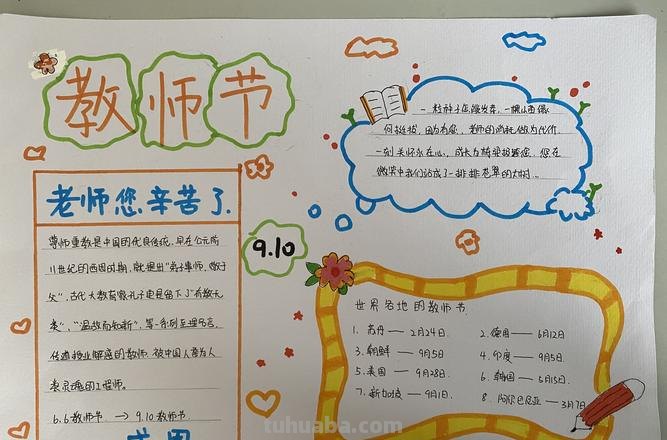 教师节
一粒种子在渐发芽,一棵小苗缘
何挺拔,因为有您,老师的消耗做为代价
一刻关怀永在心,成长为栋梁报答您,您在
微笑中我们站成了一排排苍翠的大树...
老师您辛苦了.
9.10
尊师重教是中国的优良传统,早在公元前
11世纪的西周时期,就提出"弟子事师,敬于
父",古代大教育家孔子更是留下了"有教无
类","温故而知新",等一系列至理名言,
传道授业解惑的教师,被中国人誉为人
类灵魂的工程师。
6.6教师节 → 9.10教师节
世界各地的教师节
1. 苏丹 — 2月24日.
2. 德国 — 6月12日
3. 朝鲜 — 9月5日
4. 印度 — 9月5日.
5. 美国 — 9月28日.
6. 韩国 — 5月15日.
7. 新加坡 — 9月1日.
8. 阿尔巴尼亚 — 3月7日
tuhuaba.com